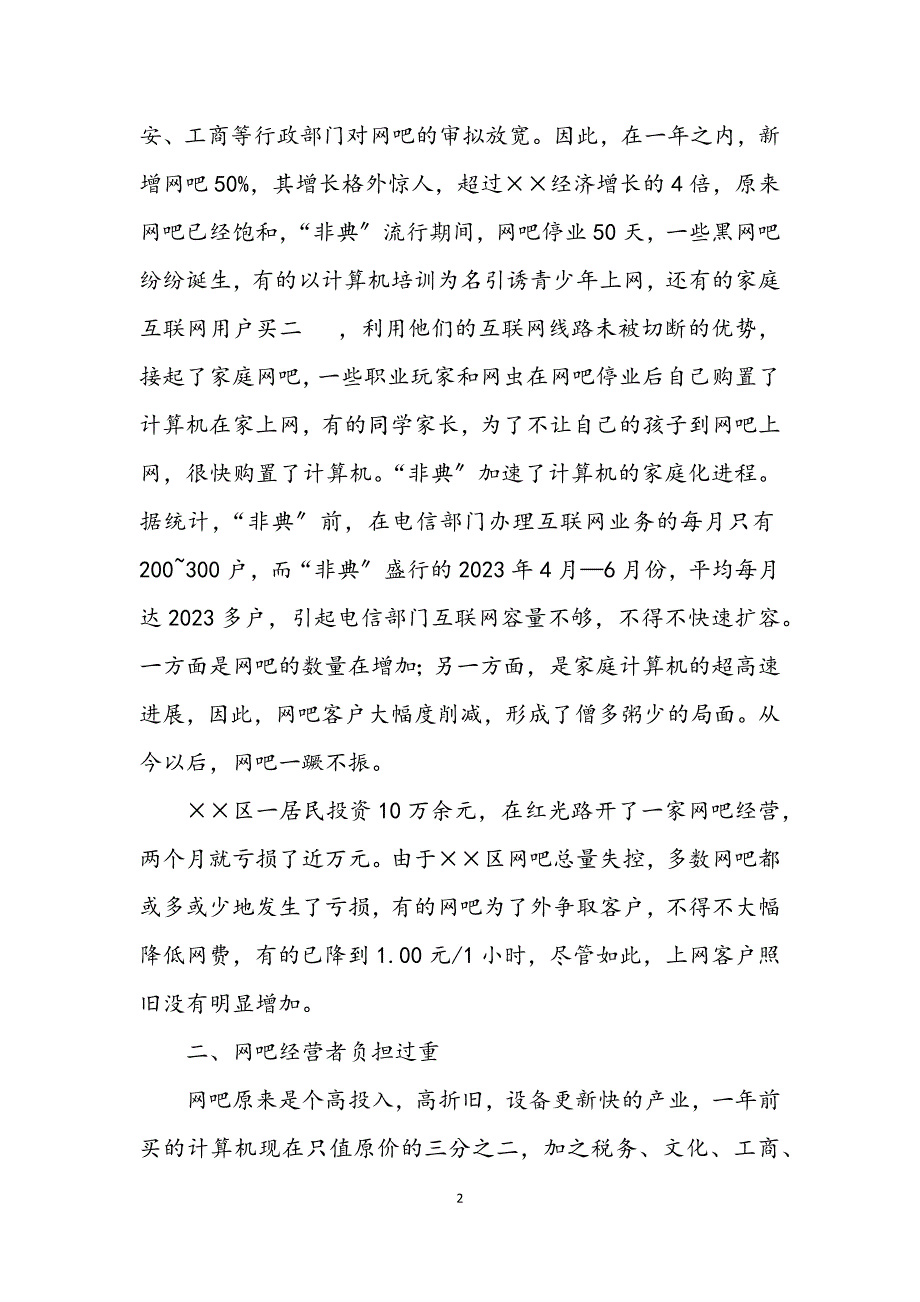 安、工商等行政部门对网吧的审拟放宽。因此，在一年之内，新
增网吧 50%，其增长格外惊人，超过××经济增长的 4 倍，原来
网吧已经饱和，“非典〞流行期间，网吧停业 50 天，一些黑网吧
纷纷诞生，有的以计算机培训为名引诱青少年上网，还有的家庭
互联网用户买二　，利用他们的互联网线路未被切断的优势，
接起了家庭网吧，一些职业玩家和网虫在网吧停业后自己购置了
计算机在家上网，有的同学家长，为了不让自己的孩子到网吧上
网，很快购置了计算机。“非典〞加速了计算机的家庭化进程。
据统计，“非典〞前，在电信部门办理互联网业务的每月只有
200~300 户，而“非典〞盛行的 2023 年 4 月—6 月份，平均每月
达 2023 多户，引起电信部门互联网容量不够，不得不快速扩容。
一方面是网吧的数量在增加；另一方面，是家庭计算机的超高速
进展，因此，网吧客户大幅度削减，形成了僧多粥少的局面。从
今以后，网吧一蹶不振。
××区一居民投资 10 万余元，在红光路开了一家网吧经营，
两个月就亏损了近万元。由于××区网吧总量失控，多数网吧都
或多或少地发生了亏损，有的网吧为了外争取客户，不得不大幅
降低网费，有的已降到 1.00 元/1 小时，尽管如此，上网客户照
旧没有明显增加。
二、网吧经营者负担过重
网吧原来是个高投入，高折旧，设备更新快的产业，一年前
买的计算机现在只值原价的三分之二，加之税务、文化、工商、
2